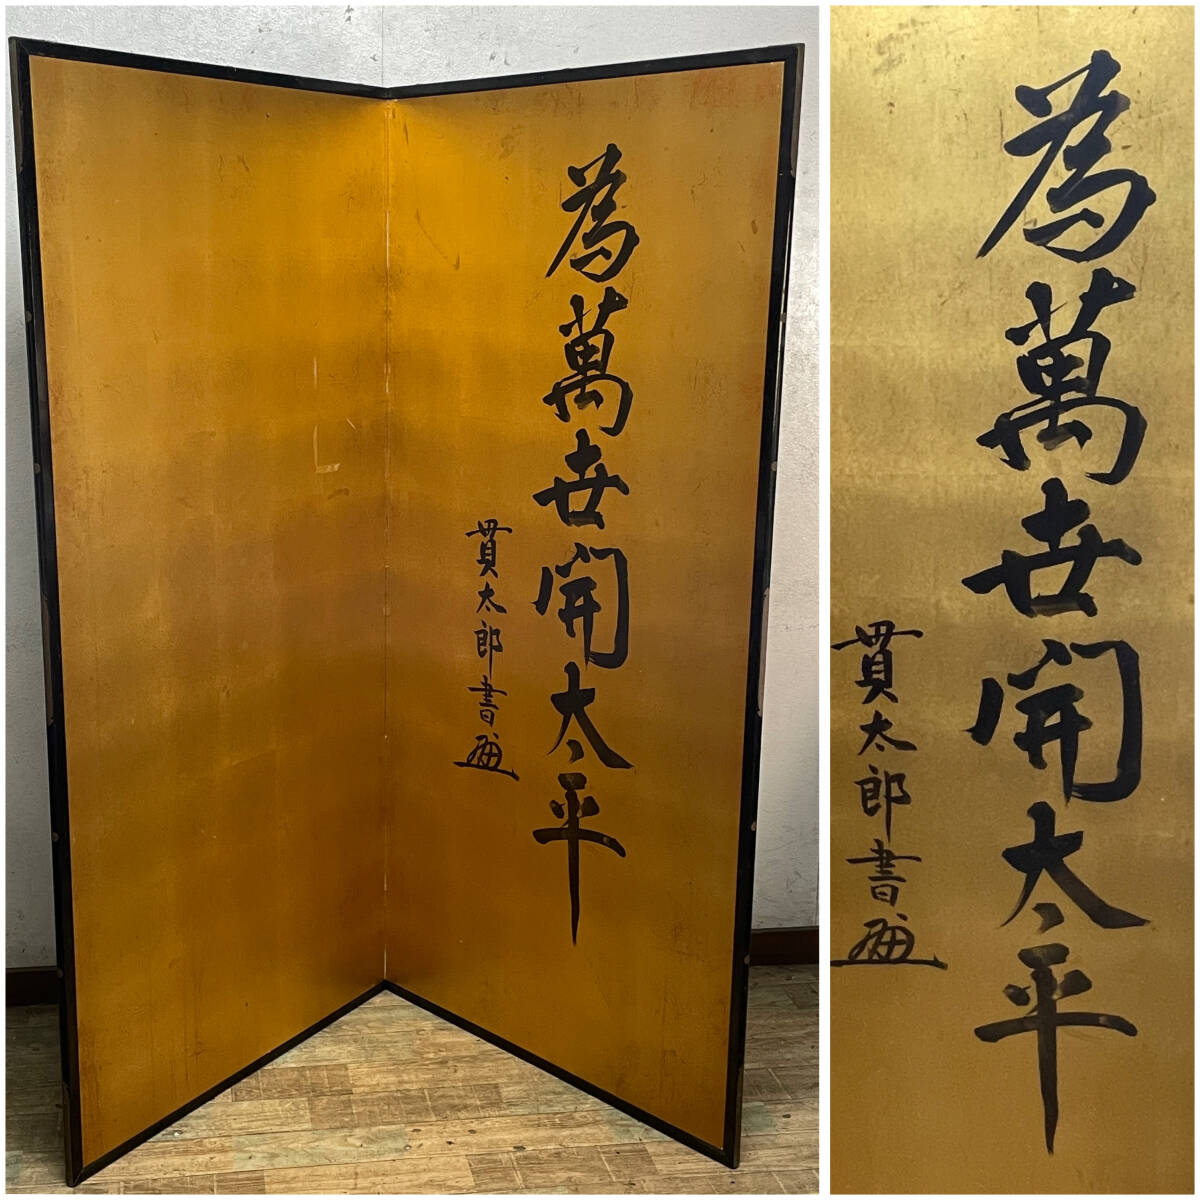 為萬世開太平
貫太郎書
為萬世開太平
貫太郎書